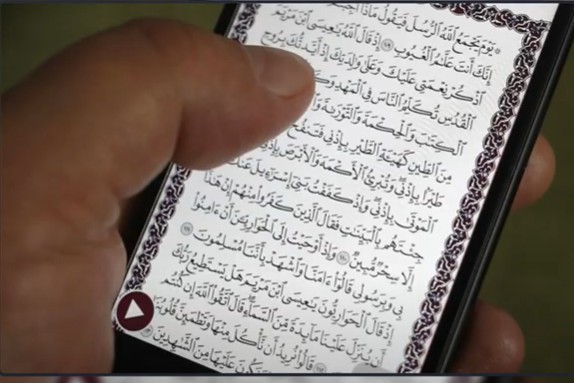 ۞ يَوْمَ يَجْمَعُ ٱللَّهُ ٱلرُّسُلَ فَيَقُولُ مَاذَآ
إِنَّكَ أَنتَ عَلَّٰمُ ٱلْغُيُوبِ ١٠٩ إِذْ قَالَ ٱللَّهُ يَٰعِيسَى ٱبْنَ مَرْيَمَ
ٱذْكُرْ نِعْمَتِى عَلَيْكَ وَعَلَىٰ وَٰلِدَتِكَ إِذْ أَيَّدتُّكَ بِرُوحِ
ٱلْقُدُسِ تُكَلِّمُ ٱلنَّاسَ فِى ٱلْمَهْدِ
ٱلْكِتَٰبَ وَٱلْحِكْمَةَ وَٱلتَّوْرَىٰةَ
مِنَ ٱلطِّينِ كَهَيْـَٔةِ ٱلطَّيْرِ بِإِذْنِى فَتَنفُخُ
طَيْرًۢا بِإِذْنِى وَتُبْرِئُ ٱلْأَكْمَهَ وَٱلْأَبْرَصَ بِإِذْنِى
ٱلْمَوْتَىٰ بِإِذْنِى وَإِذْ كَفَفْتُ بَنِىٓ إِسْرَٰٓءِيلَ عَنكَ
جِئْتَهُم بِٱلْبَيِّنَٰتِ فَقَالَ ٱلَّذِينَ كَفَرُوا۟ مِنْهُمْ إِنْ هَٰذَآ
إِلَّا سِحْرٌ مُّبِينٌ ١١٠ وَإِذْ أَوْحَيْتُ إِلَى ٱلْحَوَارِيِّـۧنَ أَنْ ءَامِنُوا۟
بِى وَبِرَسُولِى قَالُوٓا۟ ءَامَنَّا وَٱشْهَدْ بِأَنَّنَا مُسْلِمُونَ ١١١
إِذْ قَالَ ٱلْحَوَارِيُّونَ يَٰعِيسَى ٱبْنَ مَرْيَمَ هَلْ يَسْتَطِيعُ رَبُّكَ
أَن يُنَزِّلَ عَلَيْنَا مَآئِدَةً مِّنَ ٱلسَّمَآءِ قَالَ ٱتَّقُوا۟ ٱللَّهَ إِن كُنتُم
قَالُوا۟ نُرِيدُ أَن نَّأْكُلَ مِنْهَا وَتَطْمَئِنَّ قُلُوبُنَا
وَنَكُونَ عَلَيْهَا مِنَ ٱلشَّٰهِدِينَ ١١٣